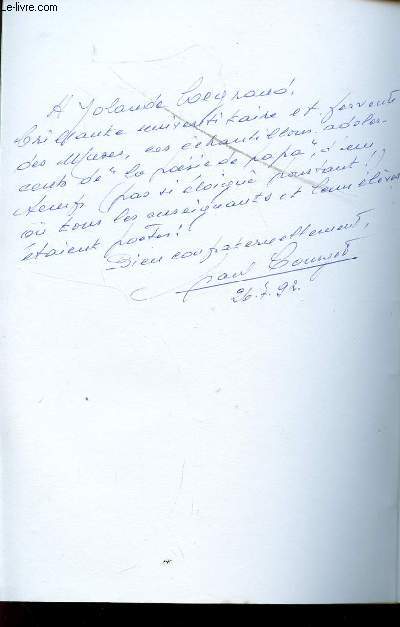 Le-livre.com
A Yolande Legrand,
brillante universitaire et fervente
des Muses, ces échantillons adoles-
cents de "la poésie de papa", à un
temps (pas si éloigné pourtant!)
où tous les enseignants et leurs élèves
étaient poètes!
Bien confraternellement,
26.7.92.